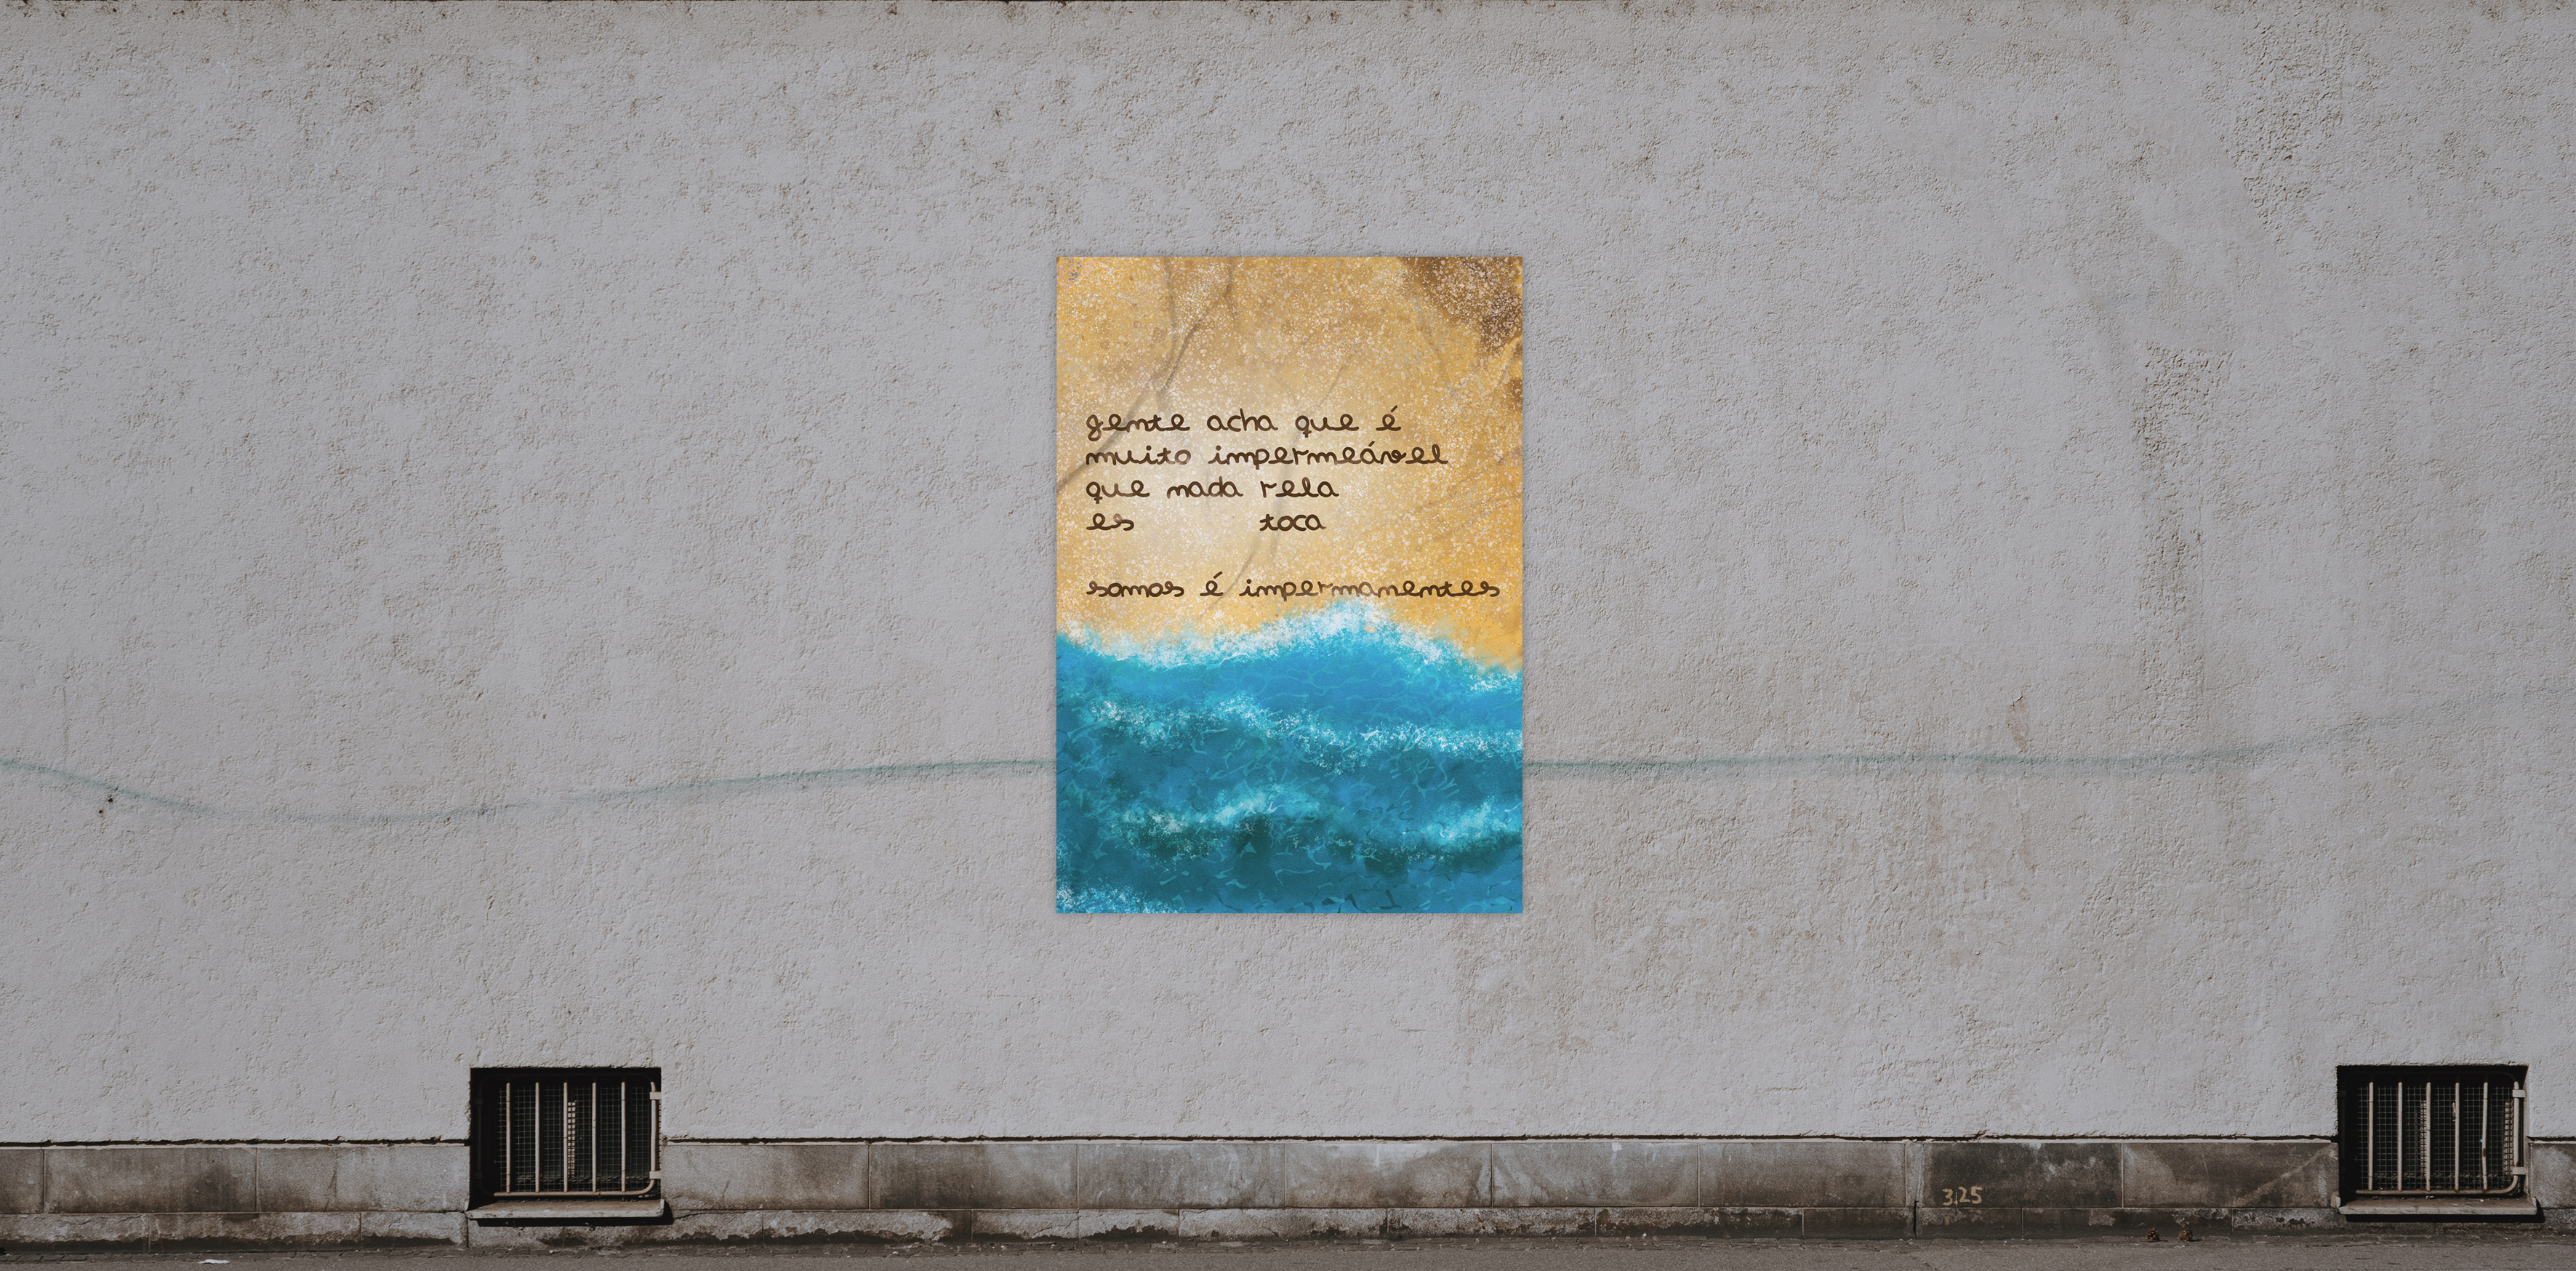 gente acha que é
muito impermeável
que nada rela
es toca
somos é impermanentes
3,25